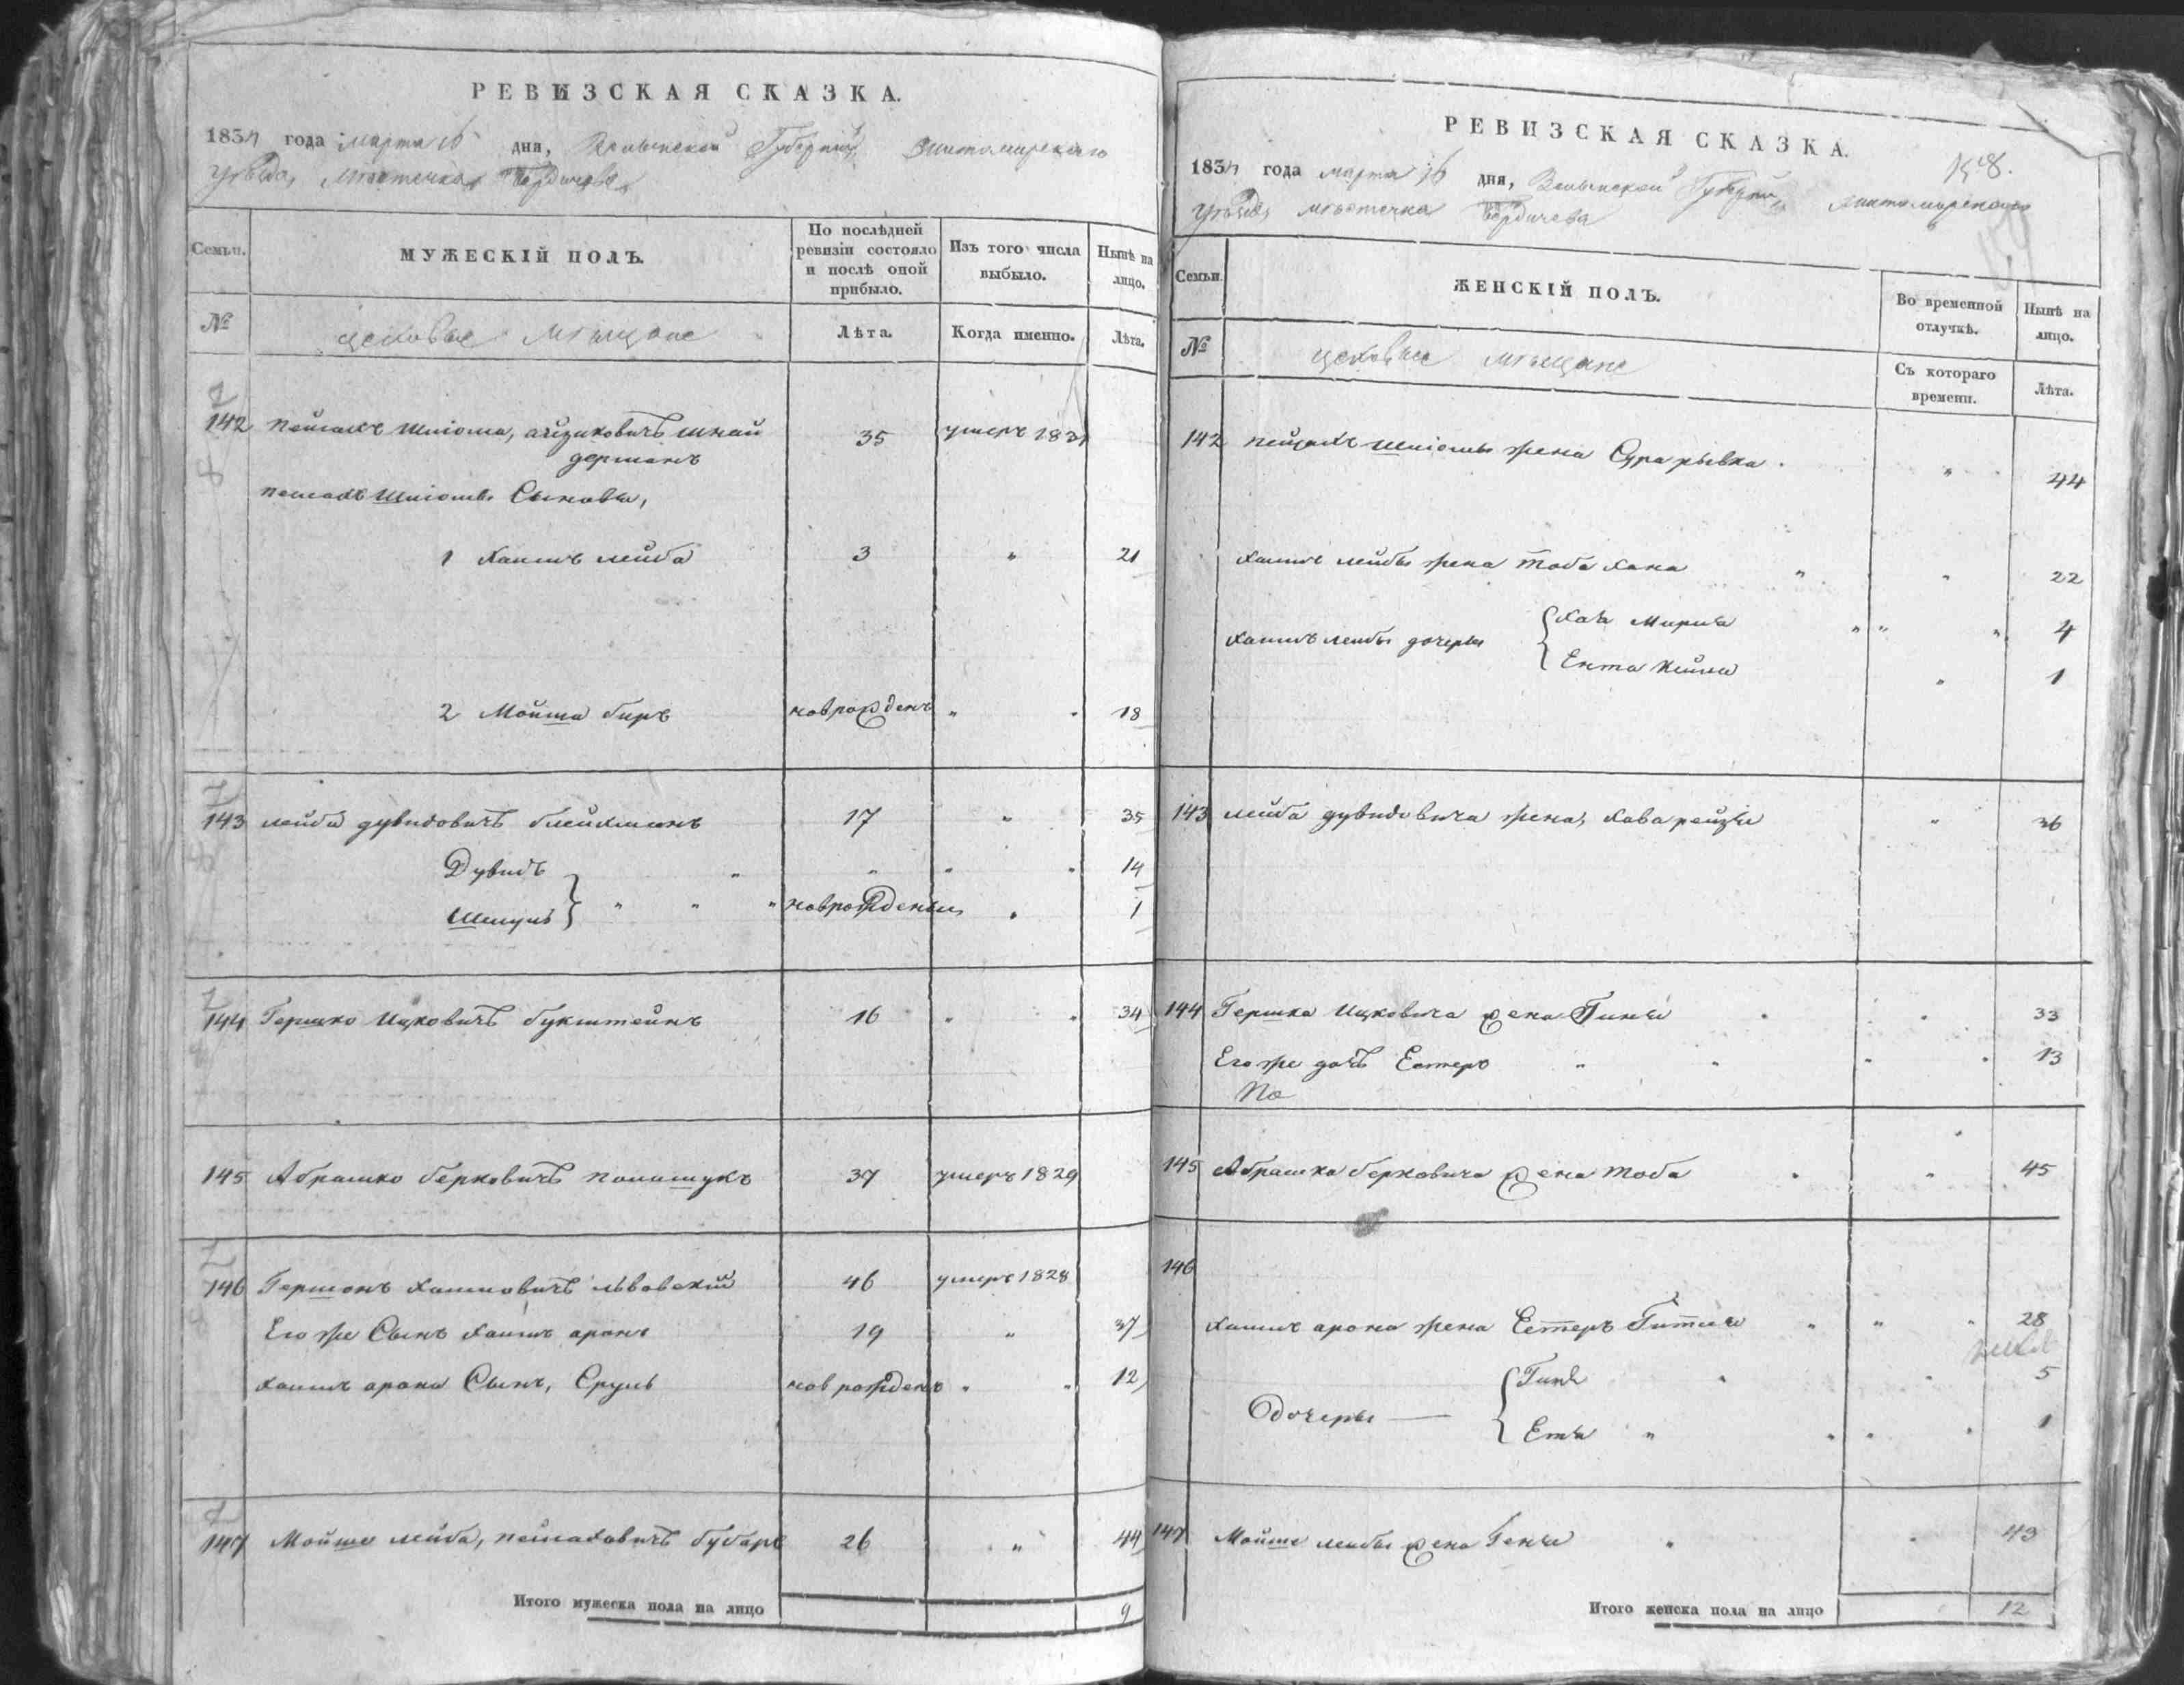 РЕВИЗСКАЯ СКАЗКА.
1834 года марта 16 дня, Волынской Губерніи Житомирского
уѣзда, мѣстечка Бердичева
Семьи.
МУЖЕСКІЙ ПОЛЪ.
По послѣдней ревизіи состояло и послѣ оной прибыло.
Изъ того числа выбыло.
Нынѣ на лицо.
№
цеховые мѣщане
Лѣта.
Когда именно.
Лѣта.
142 пейсахъ шліома, айзиковичъ шнай 35 умеръ 1831
дерманъ
пейсахъ шліомы Сыновья,
1 хаимъ лейба 3 " 21
2 Мойша беръ новрожденъ " " 18
143 лейба дувидовичъ блейхманъ 17 " 35
Дувидъ " " " " 14
Шмуль " " " новрожденые " 1
144 Гершко Ицковичъ букштейнъ 16 " " 34
145 Абрамко берковичъ полищукъ 37 умеръ 1829
146 Гершонъ хаимовичъ львовскій 46 умеръ 1828
Его же Сынъ хаимъ аронъ 19 " 37
хаимъ арона Сынъ, Сруль новрожденъ " " 12
147 Мойше лейба, пейсаховичъ бубарь 26 " 44
Итого мужеска пола на лицо 9
РЕВИЗСКАЯ СКАЗКА.
158.
1834 года марта 16 дня, Волынской Губерніи, Житомирского
уѣзда мѣстечка Бердичева
Семьи.
ЖЕНСКІЙ ПОЛЪ.
Во временной отлучкѣ.
Нынѣ на лицо.
№
цеховые мѣщане
Съ котораго времени.
Лѣта.
142 пейсахъ шліомы жена Сура рывка " 44
хаимъ лейбы жена тоба хана " " 22
хаимъ лейбы дочеры
Хая Мирля " " " 4
Ента " 1
143 лейба дувидовича жена, хава рейзя " 36
144 Гершка Ицковича жена " " 33
Его же дочь Естеръ " " " " 13
145 Абрамка берковича жена тоба " " 45
146
хаимъ арона жена Естеръ Гитля " " " 28
Дочеры —
" " 5
Етя " " " " 1
147 Мойше лейбы жена Геня " " 43
Итого женска пола на лицо 12